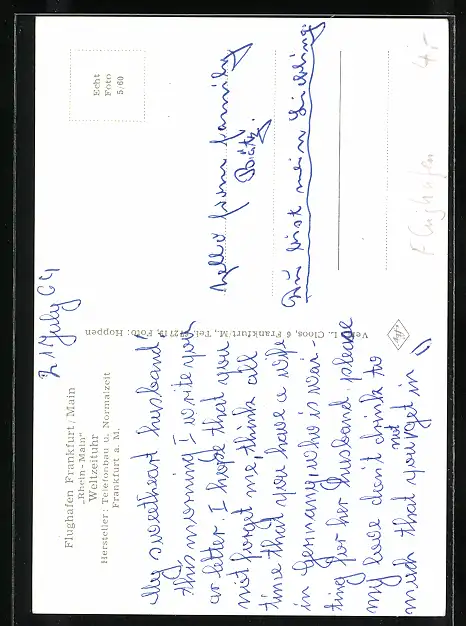 Flughafen Frankfurt/Main
„Rhein-Main"
Weltzeituhr
Hersteller: Telefonbau u. Normalzeit
Frankfurt a. M.
21 July 64
My sweetheart husband!
this morning I write you
ar letter. I hope that you
not forget me, think all
time that you have a wife
in Germany, who is wai-
ting for her husband, please
my love don't drink to
much that you not get in
Verl. L. Cloos, 6 Frankfurt/M., Tel. Foto: Hoppen
Echt
Foto
5/60
hello from family
Du bist mein Liebling.
Flughafen
4,-